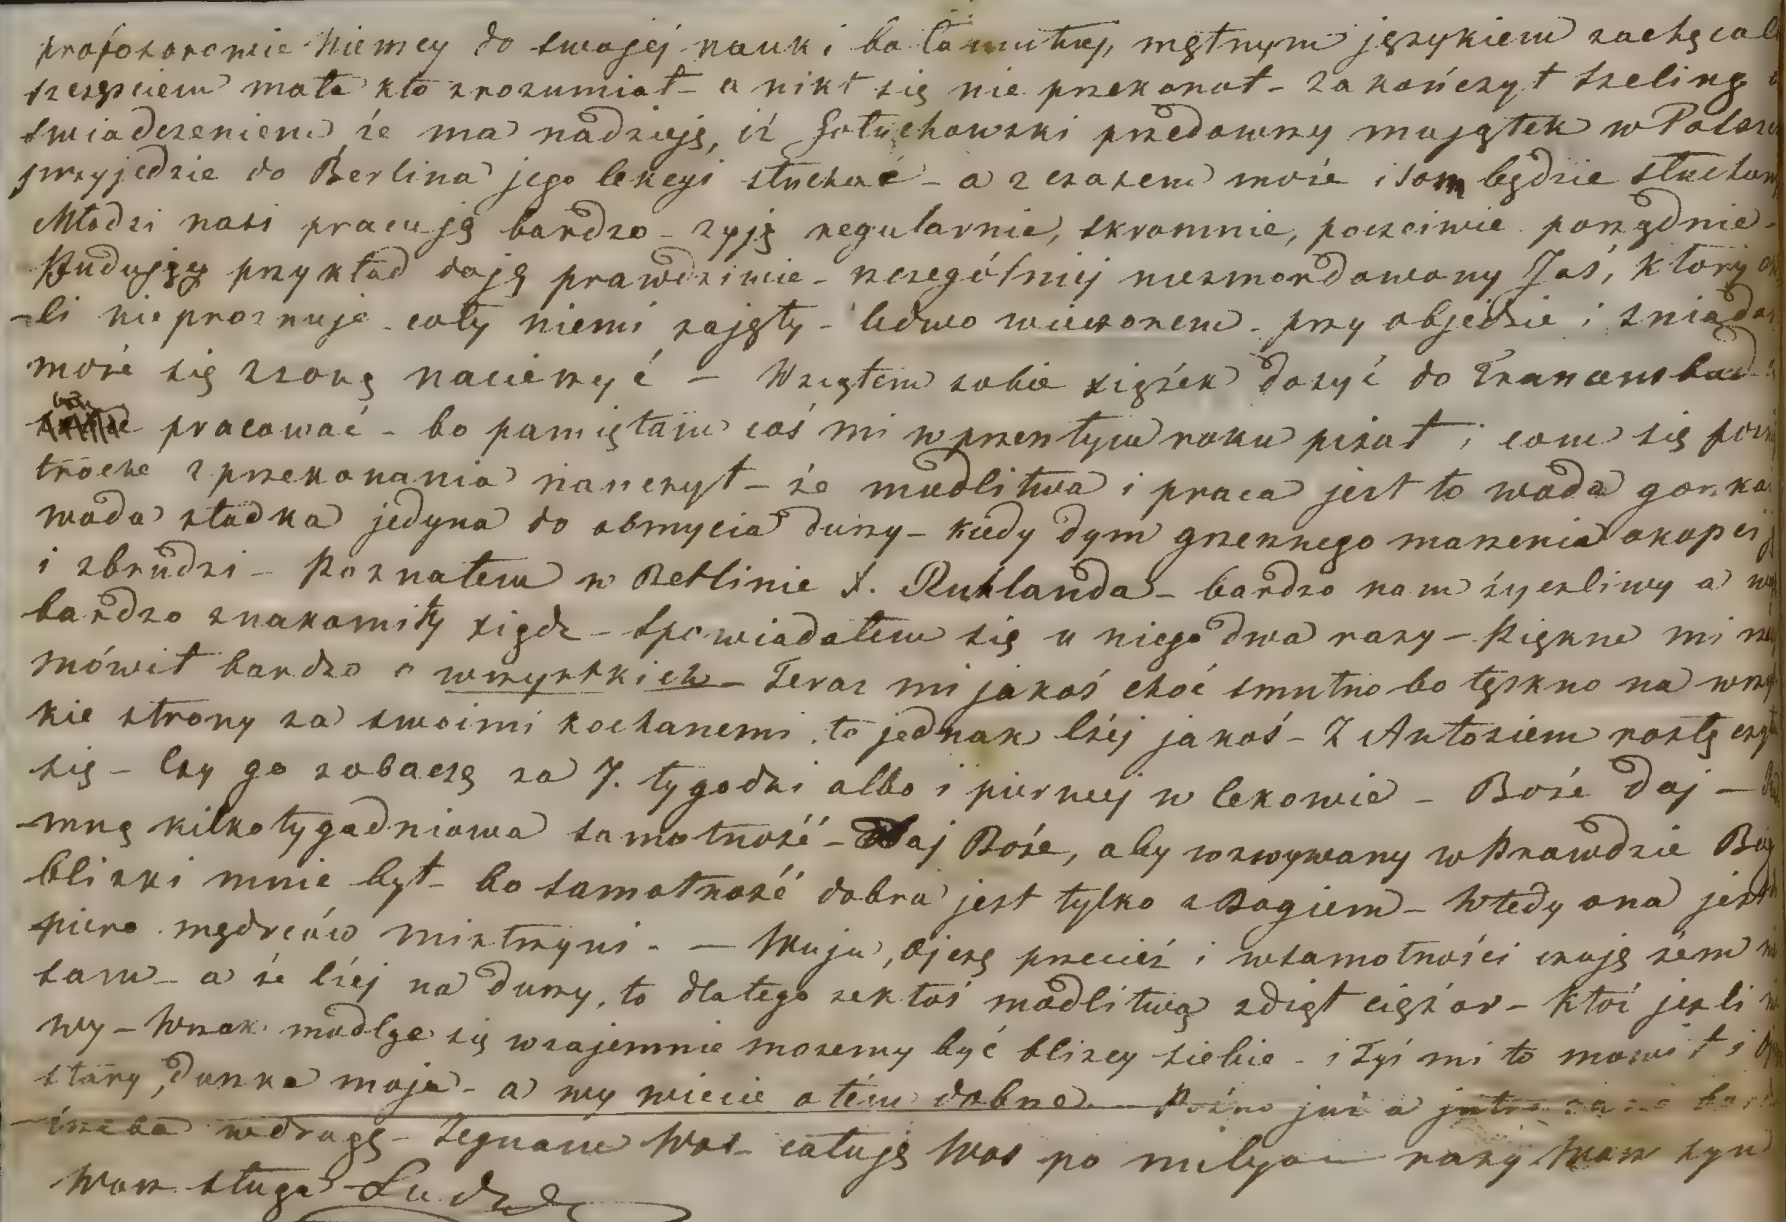 profesorowie Niemcy do swojej nauki bałamutnej, mętnym językiem zachęcal
szczęściem mało kto zrozumiał – a nikt się nie przekonał – zakończył Szeling
świadczeniem, że ma nadzieję, iż Gołuchowski przedawszy majątek w Polsz
przyjedzie do Berlina jego lekcyi słuchać – a z czasem może i sam będzie słuchan
Młodzi nasi pracują bardzo – żyją regularnie, skromnie, poczciwie porządnie –
Budujący przykład dają prawdziwie – szczególniej niezmordowany Jaś, który
–li nieproznuje cały niemi zajęty – ledwo wieczorem – przy objedzie i sniada
może się z żoną nacieszyć – Wziąłem sobie xiążek dosyć do Franzensbad
pracować – bo pamiętam coś mi w przeszłym roku pisał i com się
troche z przekonania nauczył – że modlitwa i praca jest to woda gorzka
woda słodka jedyna do obmycia duszy – kiedy dym grzesznego marzenia okopci
i zbrudzi – Poznałem w Berlinie X. Ruhlanda – bardzo nam życzliwy a
bardzo znakomity xiądz – Spowiadałem się u niego dwa razy – Piękne mi
mówił bardzo o wszystkich – Teraz mi jakoś choć smutno bo tęskno na wszy
kie strony za swoimi kochanemi, to jednak lżej jakoś – Z Antosiem rozłączy
się – Czy go zobaczę za 7. tygodni albo i pierwej w Lekowie – Boże daj –
mną kilkotygodniowa samotność – Daj Boże, aby wzywany w Prawdzie Bóg
blizki mnie był – bo samotność dobra jest tylko z Bogiem – Wtedy ona jest
piero mędrców mistrzyni. – Wuju, Ojcze przecież i w samotności czuję żem
sam – a że lżej na duszy, to dlatego że ktoś modlitwą zdjął ciężar – któż jeźli
wy – Wszak modląc się wzajemnie mozemy być bliżey siebie – i Tyś mi to mowił i
stary, Duszka moja – a wy wiecie o tém dobrze – Późno już a jutro
trzeba w drogę – Żegnam Was – całuję Was po milyon razy Wasz syn
Wasz sługa